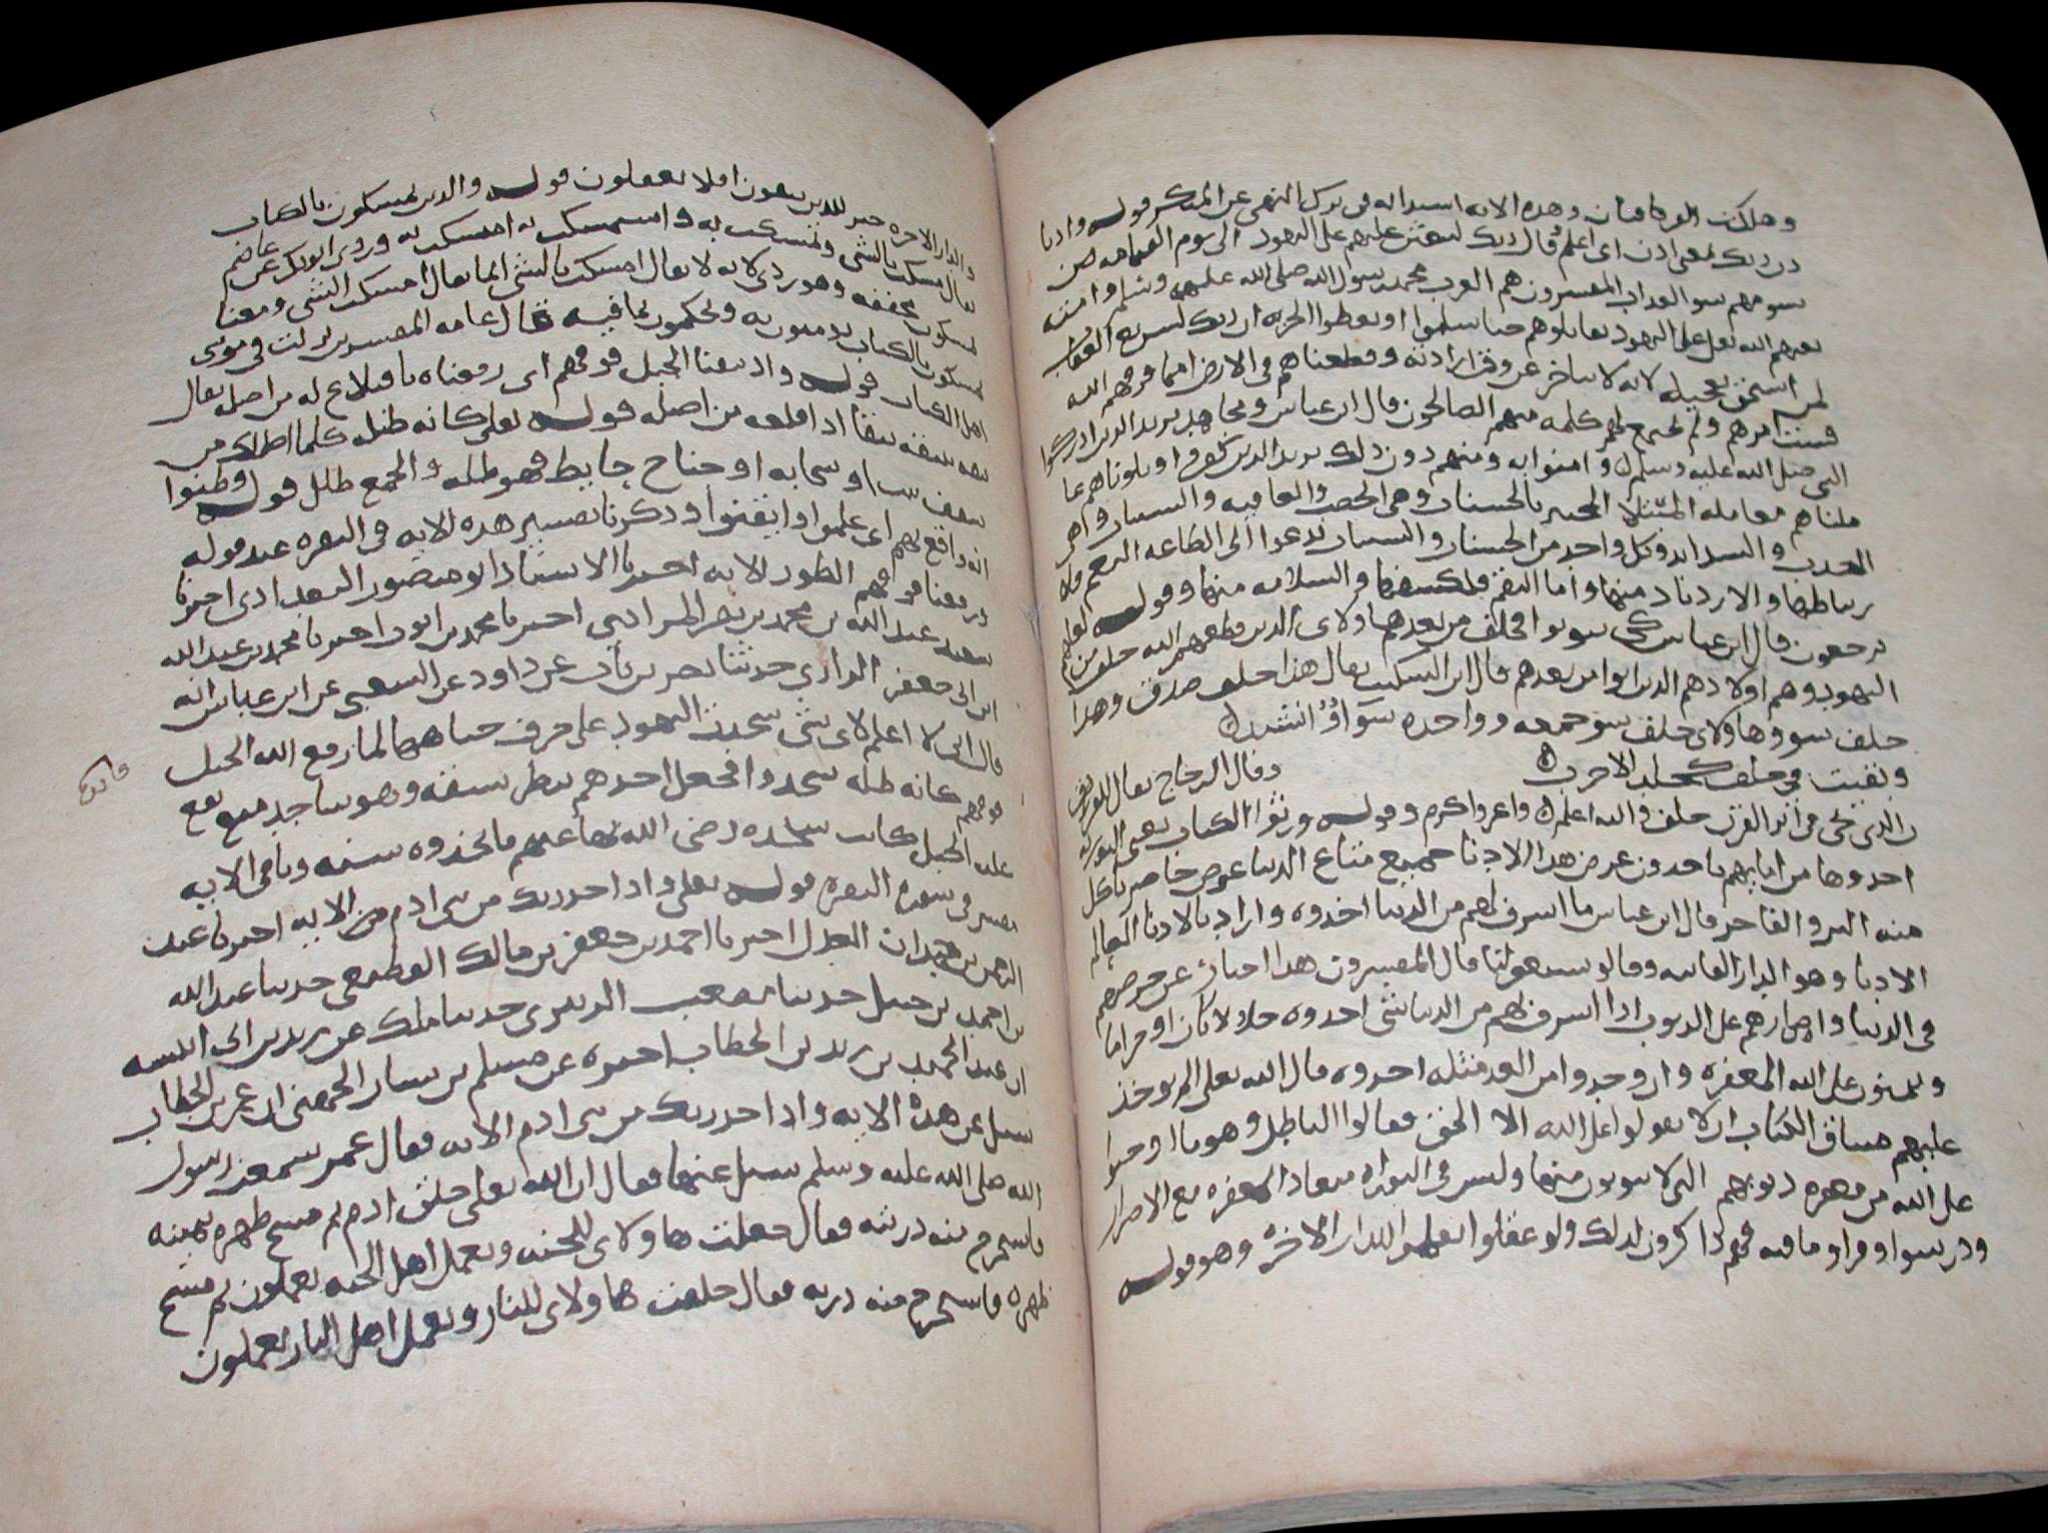 وهلكت الفرقتان وهذه الاية اشد اية في ترك النهي عن المنكر قوله واذ تا
ذن ربك معنى اذن اى اعلم قال ربك ليبعثن عليهم على اليهود الى يوم القيامه من
يسومهم سو العذاب المفسرون هم العرب محمد رسول الله صلى الله عليه وسلم وامته
بعثهم الله تعالى على اليهود يقاتلوهم حتا يسلموا او يعطوا الجزيه ان ربك لسريع العقاب
لمن استحق تعجيله لانه لا يتاخر عن وقت ارادته وقطعناهم في الارض امما فرقهم الله
فتشتت امرهم ولم تجتمع لهم كلمه منهم الصالحون قال ابن عباس ومجاهد يريد الذين ادركوا
النبي صلى الله عليه وسلم وامنوا به ومنهم دون ذلك يريد الذين كفروا وبلوناهم عا
ملناهم معامله المبتلا المختبر بالحسنات وهي الخصب والعافيه والسيات وهي
الجدب والشدايد وكل واحد من الحسنات والسيات تدعوا الى الطاعه النعم فلا
رتباطها والازدياد منها واما النقم فلكشفها والسلامه منها وقوله لعلهم
يرجعون قال ابن عباس كي يتوبوا فخلف من بعدهم هاولاى الذين قطعهم الله خلف من
اليهود وهم اولادهم الذين اتوا من بعدهم قال ابن السكيت يقال هذا خلف صدق وهذا
خلف سو وهاولاى خلف سو جمعه وواحده سوآ وانشد
وبقيت في خلف كجلد الاجرب
وقال الزجاج يقال للقرن
الذي يجى في اثر القرن خلف والله اعلم واعز واكرم وقوله ورثوا الكتاب يعني التوريه
اخذوها من ابايهم ياخذون عرض هذا الادنا جميع متاع الدنيا عرض حاضر ياكل
منه البر والفاجر قال ابن عباس ما اشرف لهم من الدنيا اخذوه واراد بالادنا العالم
الادنا وهو الدار الفانيه وقالو سيغفر لنا قال المفسرون هذا اخبار عن حرصهم
في الدنيا واصرارهم على الذنوب اذا اشرف لهم من الدنيا شى اخذوه حلالا كان او حراما
ويتمنون على الله المغفره وان وجدوا من الغد مثله اخذوه قال الله تعالى الم يوخذ
عليهم ميثاق الكتاب ان لا يقولوا على الله الا الحق فقالوا الباطل وهو ما اوجبوا
على الله من مغفره ذنوبهم التي لا يتوبون منها وليس في التوراه ميعاد المغفره مع الاصرار
ودرسوا وقراو ما فيه فهم ذاكرون لذلك ولو عقلوا لعملوا للدار الاخره وهو قوله
والدار الاخره خير للذين يتقون افلا يعقلون قوله والذين يمسكون بالكتاب
يقال مسكت بالشى وتمسكت به واستمسكت به امسكت به وروى ابو بكر عن عاصم
يمسكون مخففه وهو ردى لانه لا يقال امسكت بالشى انما يقال امسكت الشى ومعنا
يمسكون بالكتاب يومنون به ويحكمون بما فيه قال عامه المفسرين نزلت في مومنى
اهل الكتاب قوله واذ نتقنا الجبل فوقهم اى رفعناه باقتلاع له من اصله يقال
نتقه ينتقه نتقا اذا قلعه من اصله قوله تعالى كانه ظله كلما اظلك من
سقف بيت او سحابه او جناح حايط فهو ظله والجمع ظلل قوله وظنوا
انه واقع بهم اى علموا وايقنوا وذكرنا تفسير هذه الايه في البقره عند قوله
ورفعنا فوقهم الطور الايه اخبرنا الاستاذ ابو منصور البغدادى اخبرنا
سعيد عبد الله بن محمد بن نصر الرازي اخبرنا محمد بن ايوب اخبرنا محمد بن عبد الله
ابن ابى جعفر الرازي حدثنا نصر بن باب عن داود عن الشعبي عن ابن عباس انه
قال انى لا اعلم لاى شى سجدت اليهود على حرف جباههم لما رفع الله الجبل
فوقهم كانه ظله سجدوا فجعل احدهم ينظر بشقه وهو ساجد متى يقع
عليه الجبل كانت سجده رضى الله بها عنهم فاتخذوه سنه وباقى الايه
مفسر في سوره البقره قوله تعالى واذ اخذ ربك من بنى ادم من الايه اخبرنا عبد
الرحمن بن حمدان العدل اخبرنا احمد بن جعفر بن مالك القطيعى حدثنا عبد الله
بن احمد بن حنبل حدثنا مصعب الزبيري حدثنا ملك عن زيد بن ابى انيسه
ان عبد الحميد بن زيد بن الخطاب اخبره عن مسلم بن يسار الجهني ان عمر بن الخطاب
سيل عن هذه الايه واذ اخذ ربك من بنى ادم الايه فقال عمر سمعت رسول
الله صلى الله عليه وسلم سيل عنها فقال ان الله تعالى خلق ادم ثم مسح ظهره بيمينه
فاستخرج منه ذريته فقال خلقت هاولاى للجنه وبعمل اهل الجنه يعملون ثم مسح
ظهره فاستخرج منه ذريه فقال خلقت هاولاى للنار وبعمل اهل النار يعملون